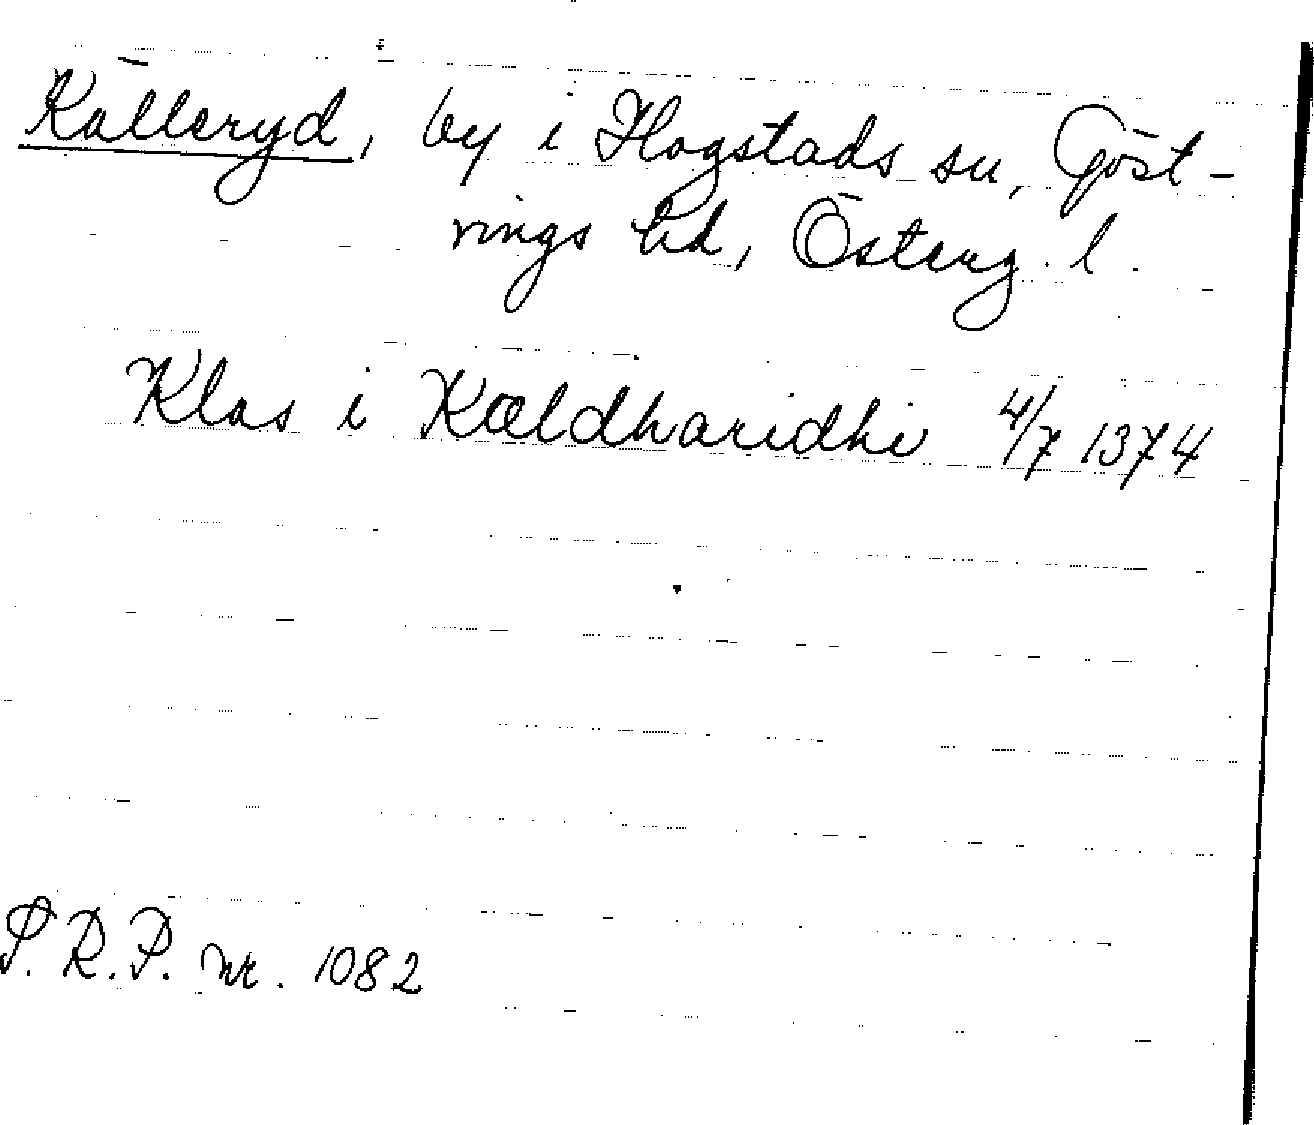 Källeryd, by i Hogstads sn, Göst-
rings hd, Österg. l.
Klas i Kældharidhi 4/7 1374
S.R.P. nr. 1082